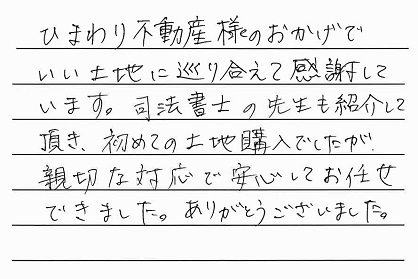 ひまわり不動産様のおかげで
いい土地に巡り合えて感謝して
います。司法書士の先生も紹介して
頂き、初めての土地購入でしたが、
親切な対応で安心してお任せ
できました。ありがとうございました。